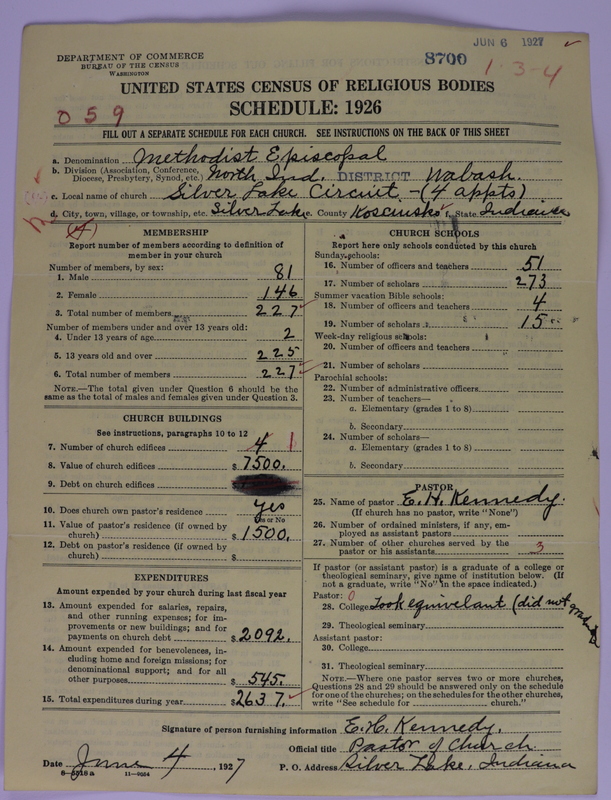 JUN 6 1927
DEPARTMENT OF COMMERCE
BUREAU OF THE CENSUS
WASHINGTON
8700
1-3-4
UNITED STATES CENSUS OF RELIGIOUS BODIES
SCHEDULE: 1926
059
FILL OUT A SEPARATE SCHEDULE FOR EACH CHURCH. SEE INSTRUCTIONS ON THE BACK OF THIS SHEET
a. Denomination Methodist Episcopal
b. Division (Association, Conference, Diocese, Presbytery, Synod, etc.) North Ind. DISTRICT Wabash.
c. Local name of church Silver Lake Circuit - (4 appts)
d. City, town, village, or township, etc. Silver Lake e. County Kosciusko f. State Indiana
(4)
MEMBERSHIP
Report number of members according to definition of
member in your church
Number of members, by sex:
1. Male 81
2. Female 146
3. Total number of members 227
Number of members under and over 13 years old:
4. Under 13 years of age 2
5. 13 years old and over 225
6. Total number of members 227
NOTE.—The total given under Question 6 should be
the same as the total of males and females given under Question 3.
CHURCH BUILDINGS
See instructions, paragraphs 10 to 12
7. Number of church edifices 4 1
8. Value of church edifices $ 7500.
9. Debt on church edifices
10. Does church own pastor's residence yes
Yes or No
11. Value of pastor's residence (if owned by
church) $ 1500.
12. Debt on pastor's residence (if owned by
church) $
EXPENDITURES
Amount expended by your church during last fiscal year
13. Amount expended for salaries, repairs,
and other running expenses; for im-
provements or new buildings; and for
payments on church debt $ 2092.
14. Amount expended for benevolences, in-
cluding home and foreign missions; for
denominational support; and for all
other purposes $ 545.
15. Total expenditures during year $ 2637.
CHURCH SCHOOLS
Report here only schools conducted by this church
Sunday schools:
16. Number of officers and teachers 51
17. Number of scholars 273
Summer vacation Bible schools:
18. Number of officers and teachers 4
19. Number of scholars 15
Week-day religious schools:
20. Number of officers and teachers
21. Number of scholars
Parochial schools:
22. Number of administrative officers
23. Number of teachers—
a. Elementary (grades 1 to 8)
b. Secondary
24. Number of scholars—
a. Elementary (grades 1 to 8)
b. Secondary
PASTOR
25. Name of pastor E. H. Kennedy.
(If church has no pastor, write "None")
26. Number of ordained ministers, if any, em-
ployed as assistant pastors
27. Number of other churches served by the
pastor or his assistants 3
If pastor (or assistant pastor) is a graduate of a college or
theological seminary, give name of institution below. (If
not a graduate, write "No" in the space indicated.)
Pastor: 0
28. College Took equivelant (did not graduate
29. Theological seminary
Assistant pastor:
30. College
31. Theological seminary
NOTE.—Where one pastor serves two or more churches,
Questions 28 and 29 should be answered only on the schedule
for one of the churches; on the schedules for the other churches,
write "See schedule for church."
Signature of person furnishing information E. H. Kennedy.
Official title Pastor of Church
Date June 4, 1927 P. O. Address Silver Lake, Indiana
6—5516a 11—9054